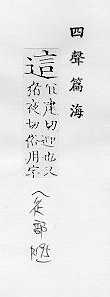 四聲篇海
這
宜建切迎也又
猪夜切俗用字
辵部